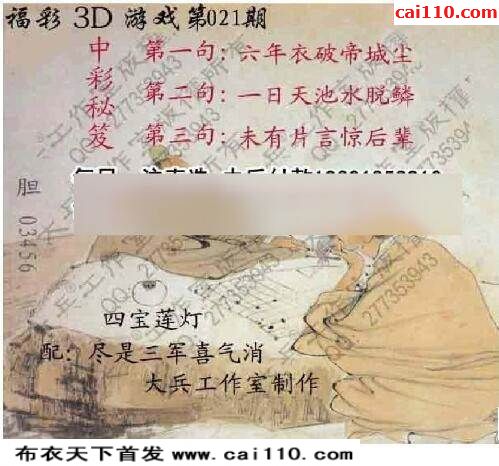 福彩 3D 游戏第021期
cai110.com
中彩秘笈
第一句：六年衣破帝城尘
第二句：一日天池水脱鳞
第三句：未有片言惊后辈
胆 03456
四宝莲灯
配：尽是三军喜气消
大兵工作室制作
大兵工作室版权所有
QQ:277353943
布衣天下首发 www.cai110.com